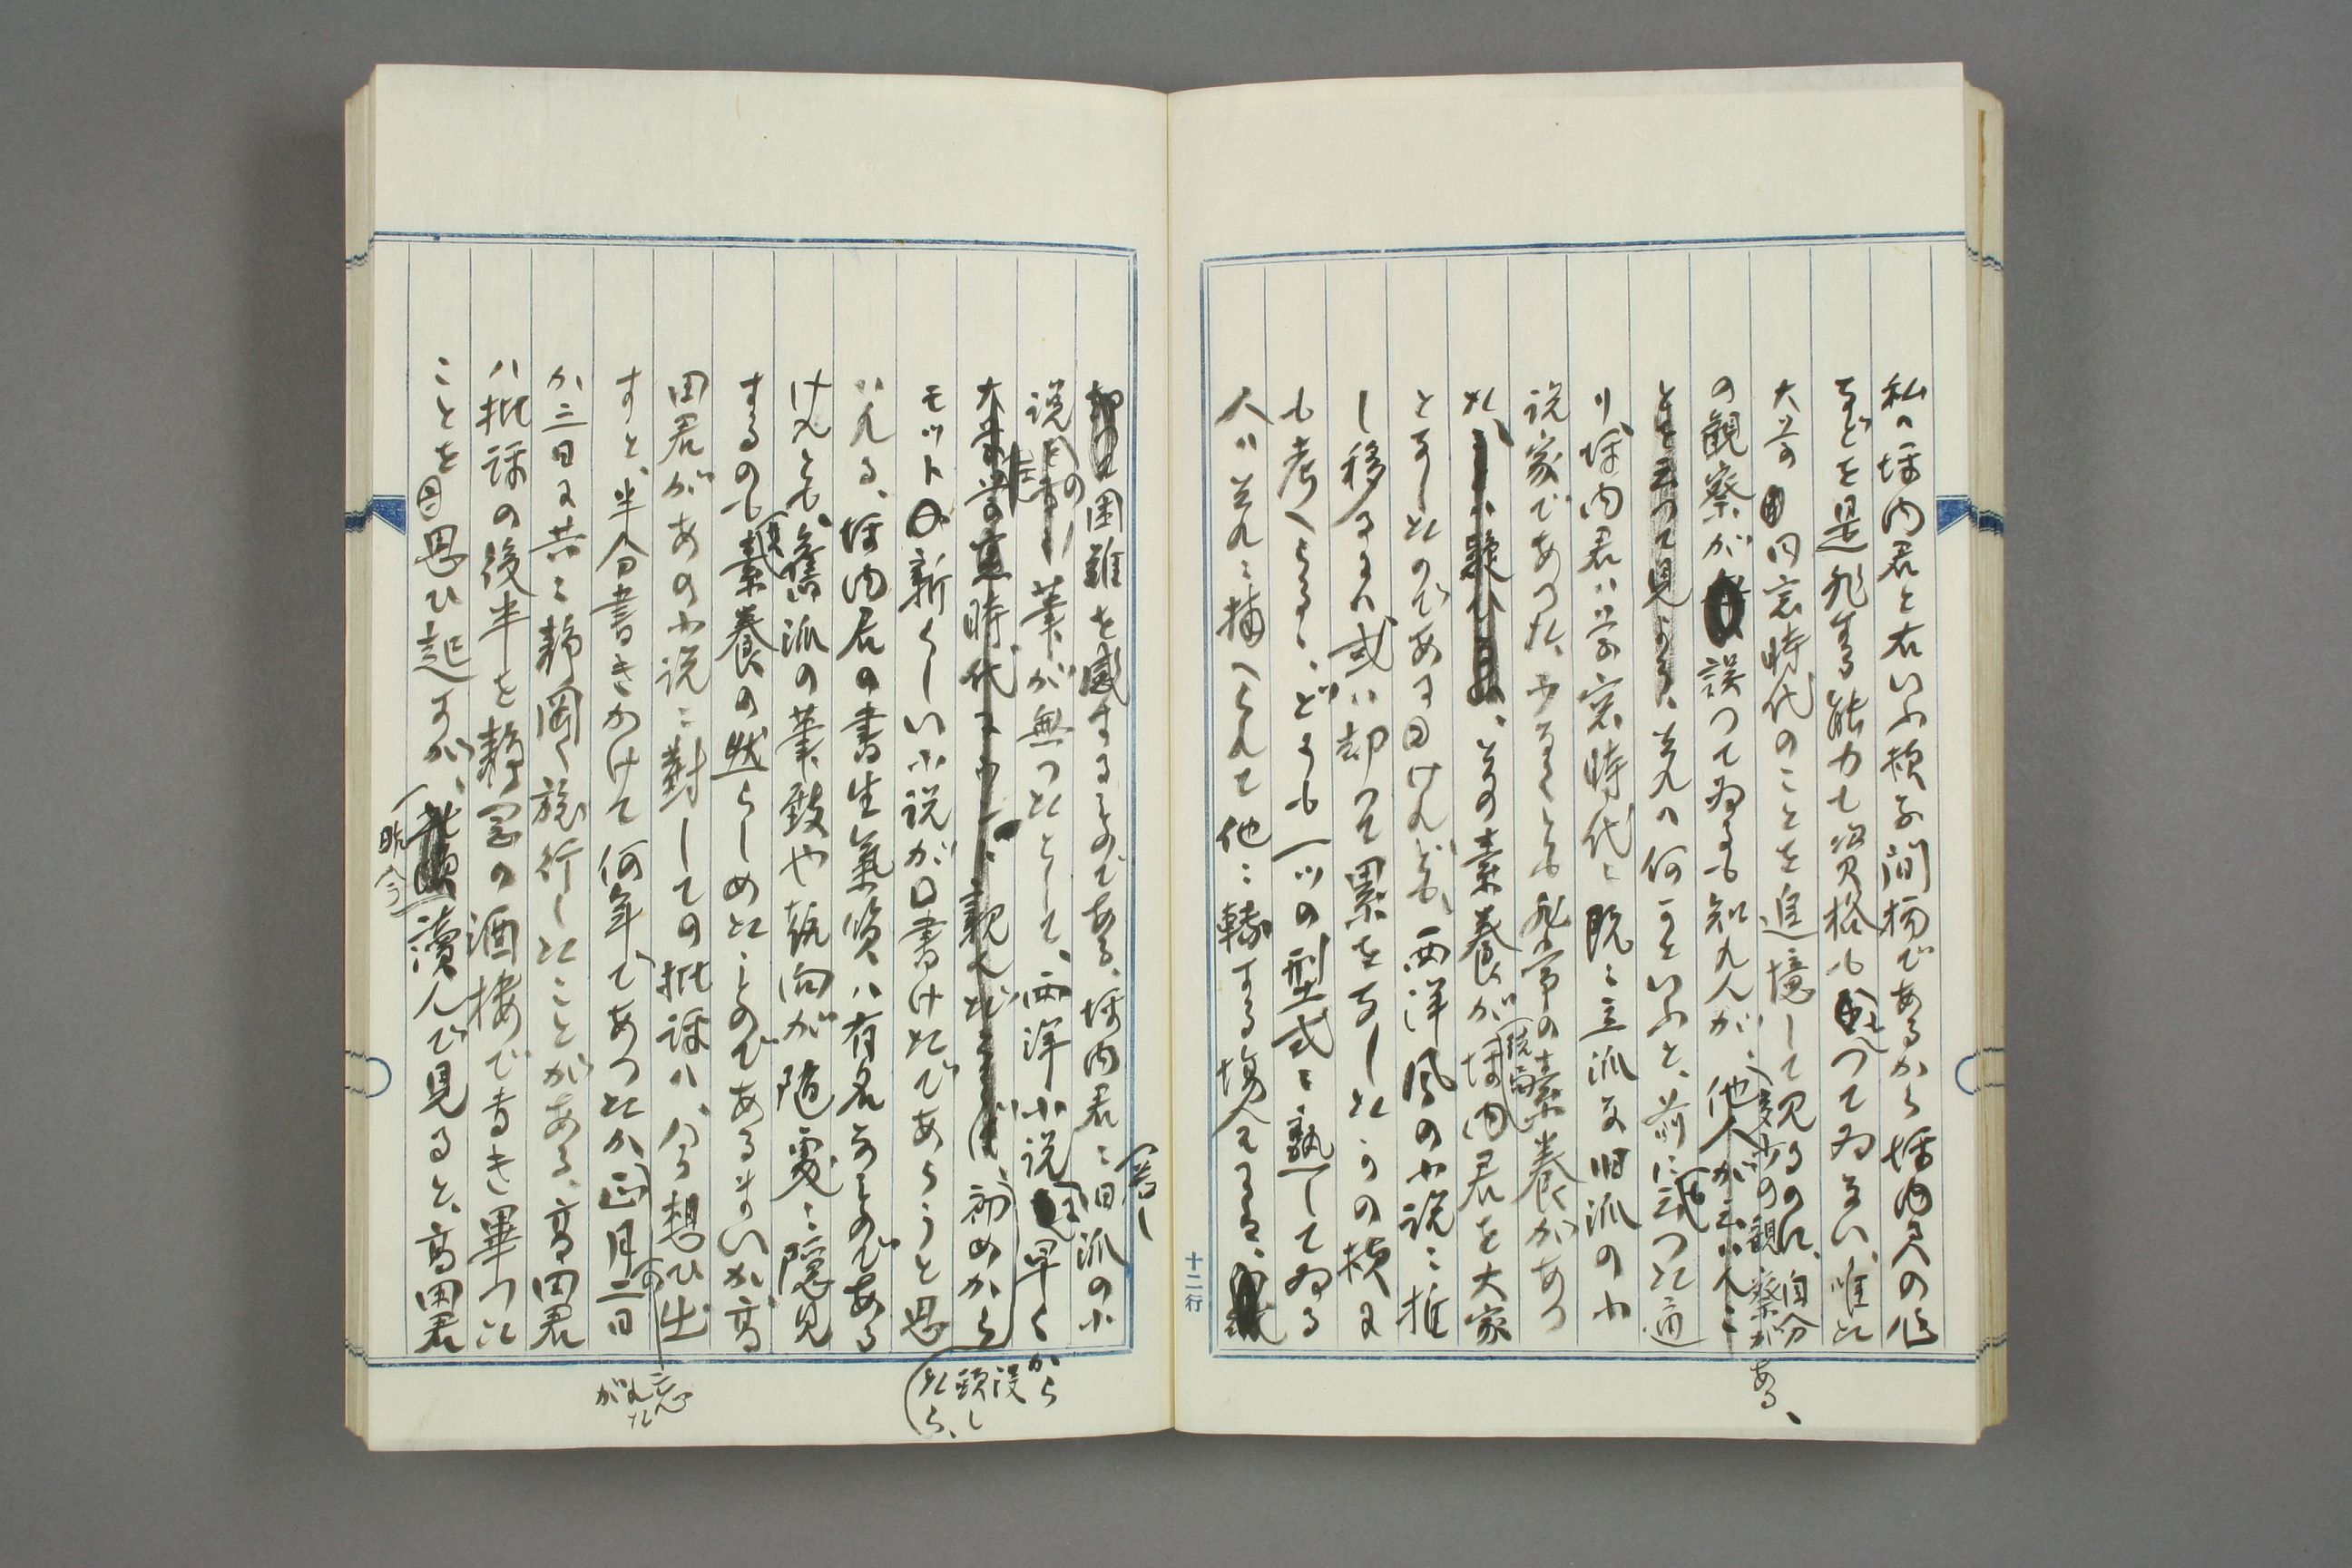 私の坪内君と右いふ様な間柄であるから坪内君の作
などを是非する能力も資格も有つてゐない、唯だ
大学の同窓時代のことを追憶して見るのに、自分
多少の観察がある、
の観察が誤つてゐるかも知れんが、
それの何かといふと、前にも云つた通
り坪内君ハ学窓時代ニ既ニ立派な旧派の小
説家であつた、少なくとも非常の素養があつ
た、其の素養が坪内君を大家
となしたのであるけれども、西洋風の小説ニ推
し移るには或ハ却つて累をなしたかの様に
も考へらる、どうも一ツの型式に熟してゐる
人ハそれニ捕へられて他ニ転ずる場合に
十二行
困難を感ずるものである、坪内君ニ旧派の小
若し
説の筆が無つたとして、西洋小説に早くから
没頭したら、
初めから
モット新らしい小説が書けたであらうと思
ハれる、坪内君の書生気質ハ有名なものである
けれとも、旧派の筆致や趣向が随処ニ隠見
するのも素養の然らしめたものである、
田君があの小説ニ対しての批評ハ、今想ひ出
すと、半分書きかけて何年であつたか忘れたが
正月の二日
か三日に共ニ静岡へ旅行したことがある、高田君
ハ批評の後半を静岡の酒楼で書き畢つた
ことを思ひ起すが、
昨今
読んで見ると、高田君